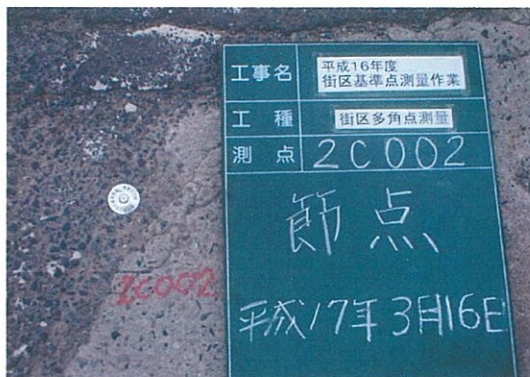 工事名 平成16年度
街区基準点測量作業
工種 街区多角点測量
測点 2C002
節点
2C002
平成17年3月16日